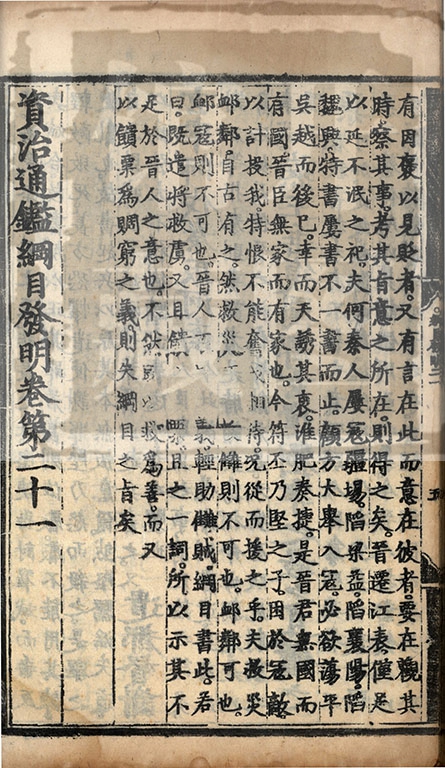 有因褒以見貶者。又有言在此而意在彼者。要在觀其
時察其事。考其旨意之所在。則得之矣。晉遷江表。僅足
以延不泯之祀。夫何秦人屢寇疆埸。陷梁益。陷襄陽。陷
魏興。特書屢書不一書而止。顧方大舉入寇。必欲蕩平
吳越而後已。幸而天誘其衷。淮肥奏捷。是晉君無國而
有國。晉臣無家而有家也。今符丕乃堅之子。困於寇敵。
以計援我。特恨不能奮戈相待。况從而援之乎。夫救災
邮鄰。自古有之。然救災 讎則不可也。邮鄰可也。
邮寇則不可也。晉人 義輕助讎賊。綱目書此。君
曰。既遣將救虜。又且饋 粟。且之 詞。所以示其不
足於晉人之意也。不然 以救爲善。而又
以饋粟爲賙窮之義。則失綱目之旨矣
資治通鑑綱目發明卷第二十一
五